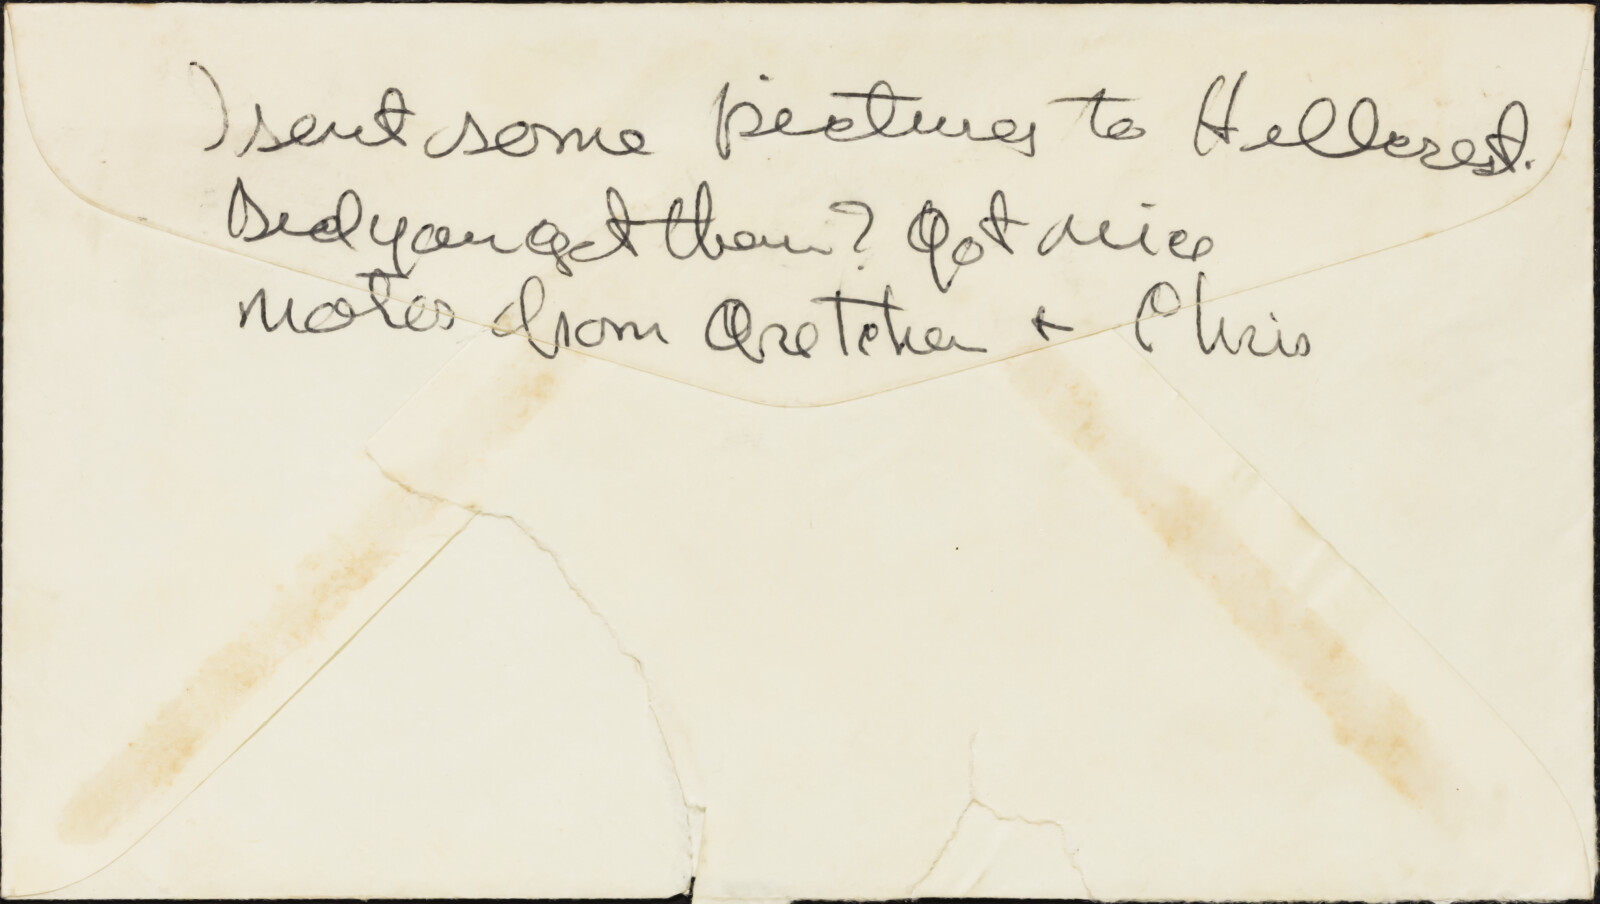 I sent some pictures to Hillcrest.
Did you get them? Got nice
notes from Gretchen + Chris